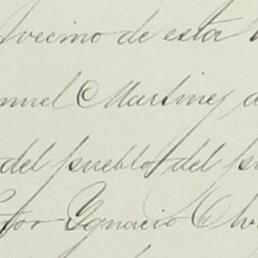 vecino de esta
nuel Martinez
del pueblo del
Ygnacio